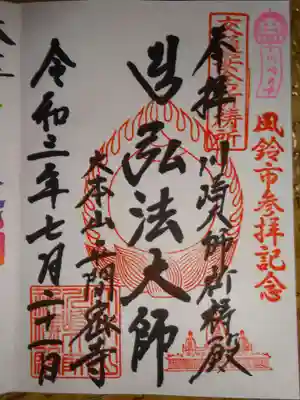 風鈴市参拝記念
交通安全祈祷
奉拝 川崎大師祈祷殿
弘法大師
大本山平間寺
令和三年七月二十一日